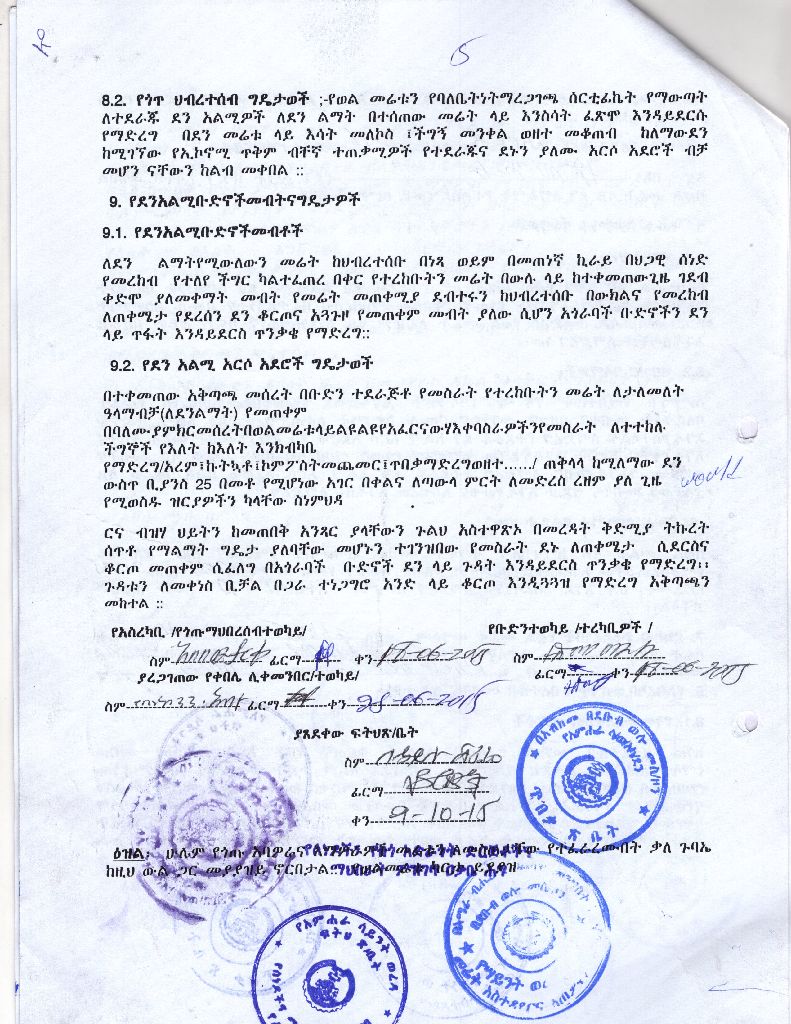 8.2. የጎጥ ህብረተሰብ ግዴታወች ;-የወል መሬቱን የባለቤትነትማረጋገጫ ሰርቲፊኬት የማውጣት
ለተደራጁ ደን አልሚዎች ለደን ልማት በተሰጠው መሬት ላይ እንስሳት ፈጽሞ እንዳይደርሱ
የማድረግ በደን መሬቱ ላይ እሳት መለኮስ ፤ችግኝ መንቀል ወዘተ መቆጠብ ከለማውደን
ከሚገኘው የኢኮኖሚ ጥቅም ብቸኛ ተጠቃሚዎች የተደራጁና ደኑን ያለሙ አርሶ አደሮች ብቻ
መሆን ናቸውን ከልብ መቀበል ፡፡
9. የደንአልሚቡድኖችመብትናግዴታዎች
9.1. የደንአልሚቡድኖችመብቶች
ለደን ልማትየሚውለውን መሬት ከህብረተሰቡ በነጻ ወይም በመጠነኛ ኪራይ በህጋዊ ሰነድ
የመረከብ የተለየ ችግር ካልተፈጠረ በቀር የተረከቡትን መሬት በውሉ ላይ ከተቀመጠውጊዜ ገደብ
ቀድሞ ያለመቀማት መብት የመሬት መጠቀሚያ ደብተሩን ከህብረተሰቡ በውክልና የመረከብ
ለጠቀሜታ የደረሰን ደን ቆርጦና አጓጉዞ የመጠቀም መብት ያለው ሲሆን አጎራባች ቡድኖችን ደን
ላይ ጥፋት እንዳይደርስ ጥንቃቄ የማድረግ፡፡
9.2. የደን አልሚ አርሶ አደሮች ግዴታወች
በተቀመጠው አቅጣጫ መሰረት በቡድን ተደራጅቶ የመስራት የተረከቡትን መሬት ለታለመለት
ዓላማብቻ(ለደንልማት) የመጠቀም
በባለሙያምክርመሰረትበወልመሬቱላይልዩልዩየአፈርናውሃእቀባስራዎችንየመስራት ለተተከሉ
ችግኞች የእለት ከእለት እንክብካቤ
የማድረግ/አረም፤ኩትኳቶ፤ኮምፖስትመጨመር፤ጥበቃማድረግወዘተ....../ ጠቅላላ ከሚለማው ደን
ውስጥ ቢያንስ 25 በመቶ የሚሆነው አገር በቀልና ለጣውላ ምርት ለመድረስ ረዘም ያለ ጊዜ
የሚወስዱ ዝርያዎችን ካላቸው ስነምህዳ
ርና ብዝሃ ህይትን ከመጠበቅ አንጻር ያላቸውን ጉልህ አስተዋጽኦ በመረዳት ቅድሚያ ትኩረት
ሰጥቶ የማልማት ግዴታ ያለባቸው መሆኑን ተገንዝበው የመስራት ደኑ ለጠቀሜታ ሲደርስና
ቆርጦ መጠቀም ሲፈለግ በአጎራባች ቡድኖች ደን ላይ ጉዳት እንዳይደርስ ጥንቃቄ የማድረግ፡፡
ጉዳቱን ለመቀነስ ቢቻል በጋራ ተነጋግሮ አንድ ላይ ቆርጦ እንዲጓጓዝ የማድረግ አቅጣጫን
መከተል ፡፡
የአስረካቢ /የጎጡማህበረሰብተወካይ/ የቡድንተወካይ /ተረካቢዎች /
ስም ፊርማ ቀን ስም
ያረጋገጠው የቀበሌ ሊቀመንበር/ተወካይ/ ፊርማ ቀን
ስም ፊርማ ቀን 28-06-2015
ያጸደቀው ፍትህጽ/ቤት
ስም
ፊርማ
ቀን 9-10-15
ዕዝል፡ ሁሉም የጎጡ አባዎራና የተፈራረሙበት ቃለ ጉባኤ
ከዚህ ውል ጋር መያያዝ ይኖርበታል